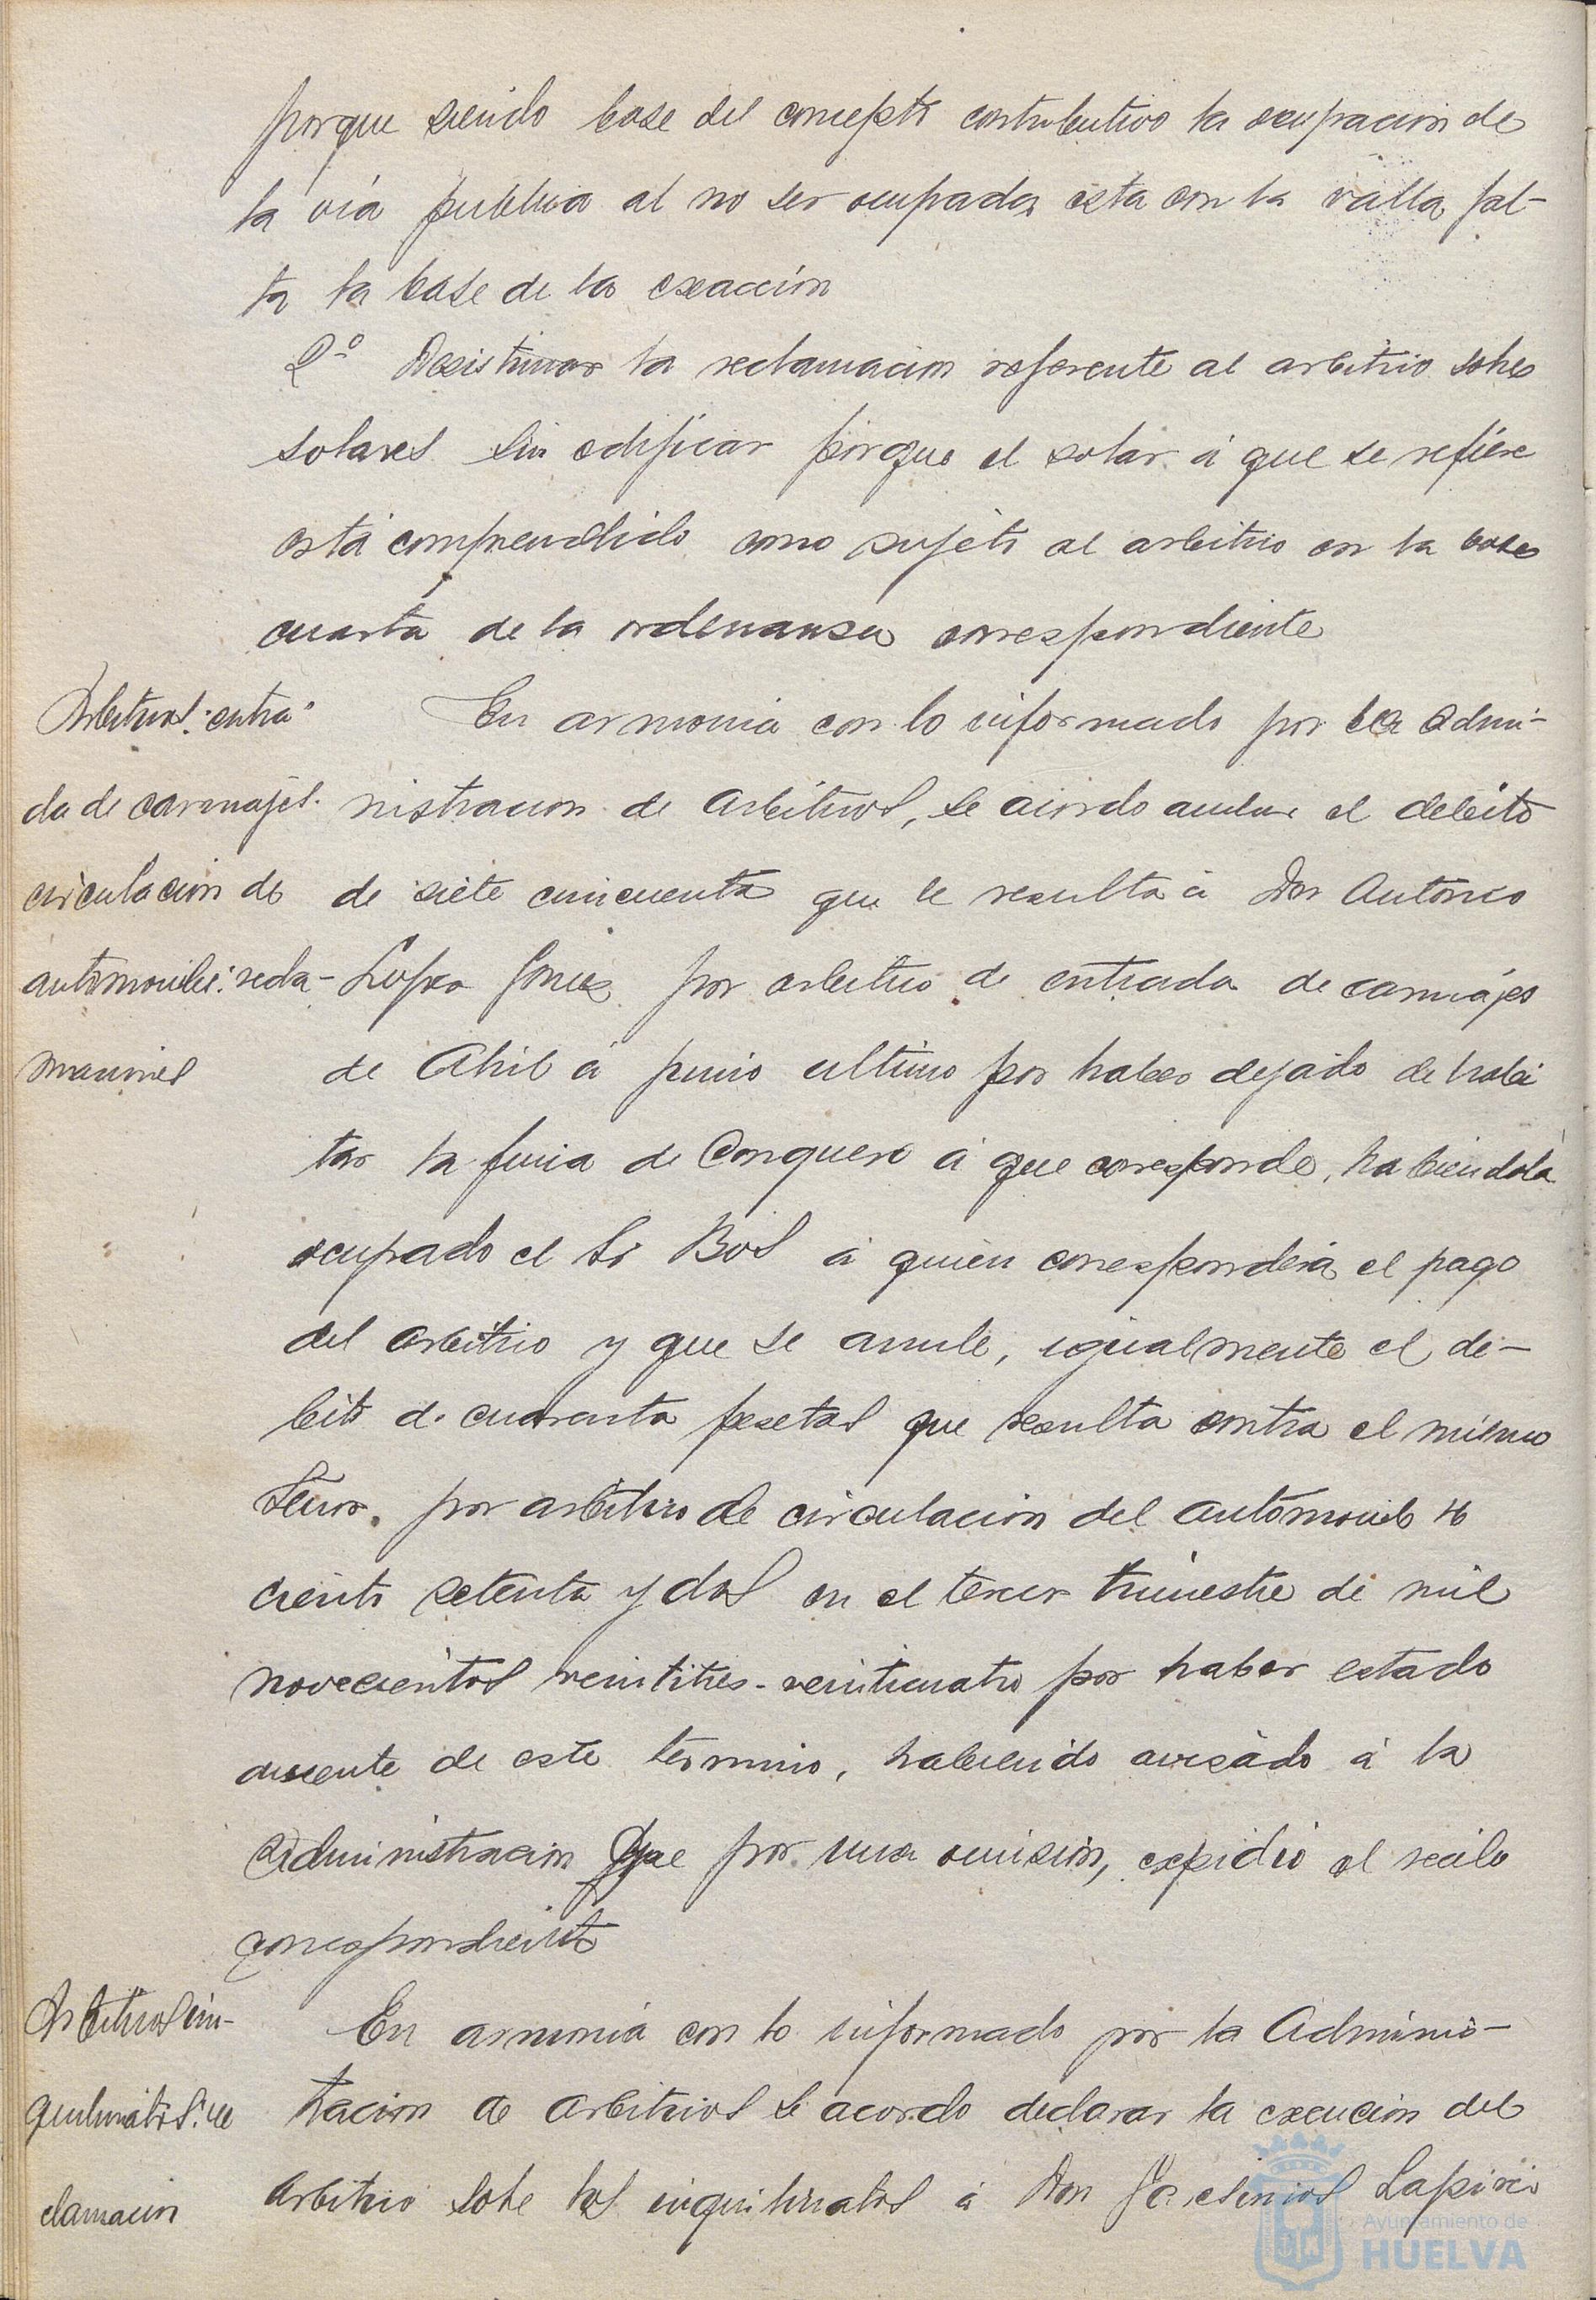 porque siendo base del concepto contributivo la ocupacion de
la vía publica al no ser ocupada esta con la valla fal-
ta la base de la exacción
2º Desistimar la reclamacion referente al arbitrio sobre
solares sin edificar porque el solar á que se refiere
está comprendido como sujeto al arbitrio en la base
cuarta de la ordenansa correspondiente
Arbitrios: entra-
da de carruajes.
circulacion de
automoviles: recla-
maciones
En armonia con lo informado por la Admi-
nistracion de Arbitrios, se acordo anular el debito
de siete cincuenta que le resulta á Don Antonio
Lopez por arbitrio de entrada de carruajes
de Abril á junio ultimo por haber dejado de habi
tar la finca de Conquero á que corresponde, habiendola
ocupado el Sr Bos á quien corresponderá el pago
del arbitrio y que se anule, igualmente el de-
bito de cuarenta pesetas que resulta contra el mismo
Señor. por arbitrio de circulacion del automovil H
ciento setenta y dos en el tercer trimestre de mil
novecientos veintitres-veinticuatro por haber estado
ausente de este termino, habiendo avisado á la
Administracion que por una omision, expidió el recibo
correspondiente
Arbitrios in-
quilinatos: re
clamacion
En armonia con lo informado por la Adminis-
tracion de Arbitrios se acordo declarar la exencion del
Arbitrio sobe los inquilinatos á Don
Ayuntamiento de
HUELVA